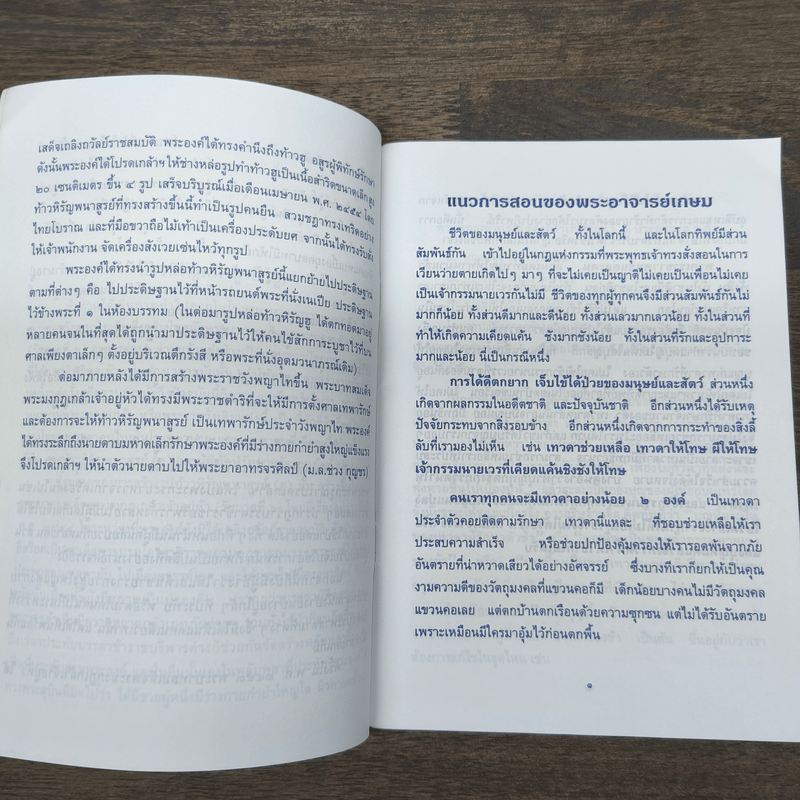 เสด็จเถลิงถวัลย์ราชสมบัติ พระองค์ได้ทรงคำนึงถึงท้าวฮู อสูรผู้พิทักษ์รักษา
ดังนั้นพระองค์ได้โปรดเกล้าฯให้ช่างหล่อรูปทำท้าวฮูเป็นเนื้อสำริดขนาดเล็กสูง
๒๐ เซนติเมตร ขึ้น ๔ รูป เสร็จบริบูรณ์เมื่อเดือนเมษายน พ.ศ. ๒๔๕๔ โดย
ท้าวหิรัญพนาสูรย์ที่ทรงสร้างขึ้นนี้ทำเป็นรูปคนยืน สวมชฎาทรงเทริดอย่าง
ไทยโบราณ และที่มือขวาถือไม้เท้าเป็นเครื่องประดับยศ จากนั้นได้ทรงรับสั่ง
ให้เจ้าพนักงาน จัดเครื่องสังเวยเซ่นไหว้ทุกรูป
พระองค์ได้ทรงนำรูปหล่อท้าวหิรัญพนาสูรย์นี้แยกย้ายไปประดิษฐาน
ตามที่ต่างๆ คือ ไปประดิษฐานไว้ที่หน้ารถยนต์พระที่นั่งเนเปีย ประดิษฐาน
ไว้ข้างพระที่ ๑ ในห้องบรรทม (ในต่อมารูปหล่อท้าวหิรัญฮู ได้ตกทอดมาอยู่
หลายคนจนในที่สุดได้ถูกนำมาประดิษฐานไว้ให้คนไข้สักการะบูชาไว้ที่บน
ศาลเพียงตาเล็กๆ ตั้งอยู่บริเวณตึกรังสี หรือพระที่นั่งอุดมวนาภรณ์เดิม)
ต่อมาภายหลังได้มีการสร้างพระราชวังพญาไทขึ้น พระบาทสมเด็จ
พระมงกุฎเกล้าเจ้าอยู่หัวได้ทรงมีพระราชดำริที่จะให้มีการตั้งศาลเทพารักษ์
และต้องการจะให้ท้าวหิรัญพนาสูรย์ เป็นเทพารักษ์ประจำวังพญาไท พระองค์
ได้ทรงระลึกถึงนายดาบมหาดเล็กรักษาพระองค์ที่มีร่างกายกำยำสูงใหญ่แข็งแรง
จึงโปรดเกล้าฯ ให้นำตัวนายดาบไปให้พระยาอาทรจรศิลป์ (ม.ล.ช่วง กุญชร)
แนวการสอนของพระอาจารย์เกษม
ชีวิตของมนุษย์และสัตว์ ทั้งในโลกนี้ และในโลกทิพย์มีส่วน
สัมพันธ์กัน เข้าไปอยู่ในกฎแห่งกรรมที่พระพุทธเจ้าทรงสั่งสอนในการ
เวียนว่ายตายเกิดไปๆ มาๆ ที่จะไม่เคยเป็นญาติไม่เคยเป็นเพื่อนไม่เคย
เป็นเจ้ากรรมนายเวรกันไม่มี ชีวิตของทุกผู้ทุกคนจึงมีส่วนสัมพันธ์กันไม่
มากก็น้อย ทั้งส่วนดีมากและดีน้อย ทั้งส่วนเลวมากเลวน้อย ทั้งในส่วนที่
ทำให้เกิดความเคียดแค้น ชังมากชังน้อย ทั้งในส่วนที่รักและอุปการะ
มากและน้อย นี่เป็นกรณีหนึ่ง
การได้ดีตกยาก เจ็บไข้ได้ป่วยของมนุษย์และสัตว์ ส่วนหนึ่ง
เกิดจากผลกรรมในอดีตชาติ และปัจจุบันชาติ อีกส่วนหนึ่งได้รับเหตุ
ปัจจัยกระทบจากสิ่งรอบข้าง อีกส่วนหนึ่งเกิดจากการกระทำของสิ่งลี้
ลับที่เรามองไม่เห็น เช่น เทวดาช่วยเหลือ เทวดาให้โทษ ผีให้โทษ
เจ้ากรรมนายเวรที่เคียดแค้นชิงชังให้โทษ
คนเราทุกคนจะมีเทวดาอย่างน้อย ๒ องค์ เป็นเทวดา
ประจำตัวคอยติดตามรักษา เทวดานี่แหละ ที่ชอบช่วยเหลือให้เรา
ประสบความสำเร็จ หรือช่วยปกป้องคุ้มครองให้เรารอดพ้นจากภัย
อันตรายที่น่าหวาดเสียวได้อย่างอัศจรรย์ ซึ่งบางทีเราก็ยกให้เป็นคุณ
งามความดีของวัตถุมงคลที่แขวนคอก็มี เด็กน้อยบางคนไม่มีวัตถุมงคล
แขวนคอเลย แต่ตกบ้านตกเรือนด้วยความซุกซน แต่ไม่ได้รับอันตราย
เพราะเหมือนมีใครมาอุ้มไว้ก่อนตกพื้น
๑